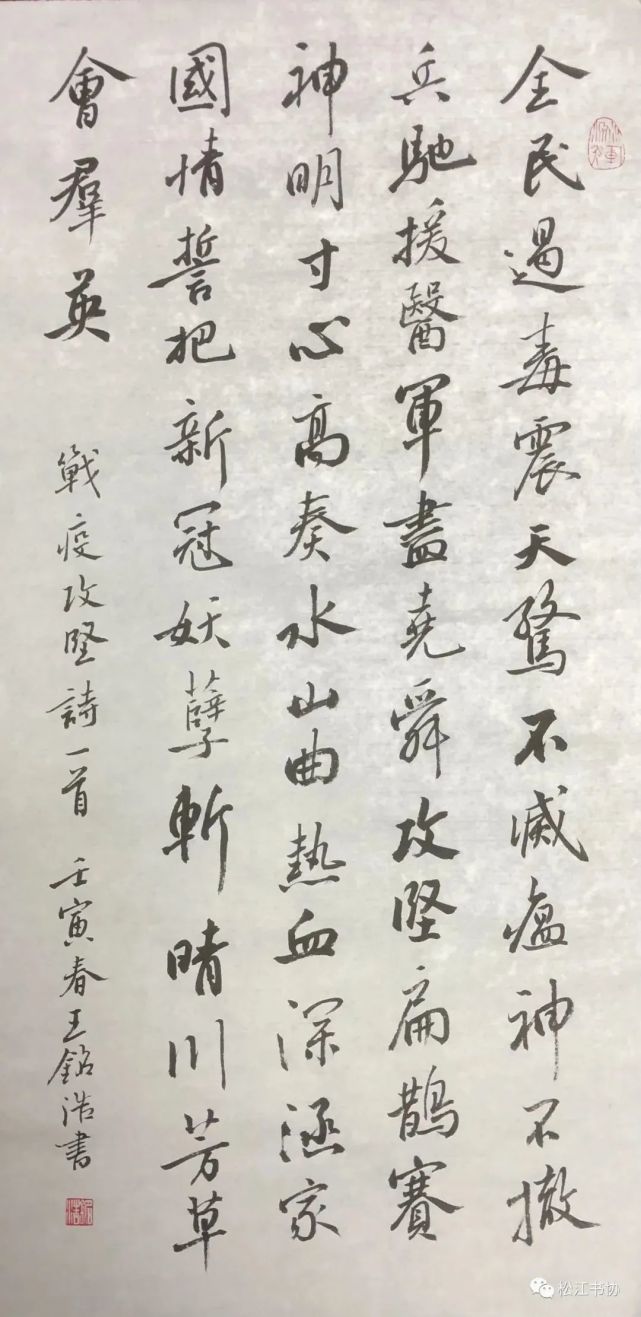 全民遏毒震天驚不滅瘟神不撤
兵馳援醫軍盡堯舜攻堅扁鵲賽
神明寸心高奏水山曲熱血深涵家
國情誓把新冠妖孽斬晴川芳草
會羣英
戰疫攻堅詩一首 壬寅春王銘浩書
松江书协